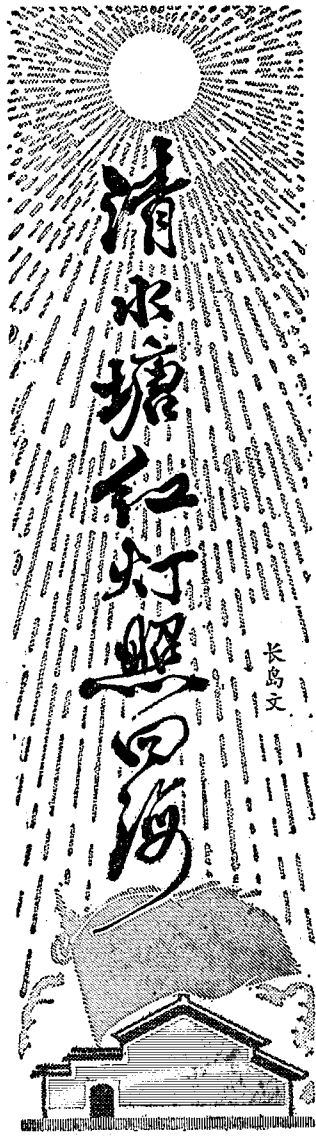 清水塘红灯照四海
长岛文